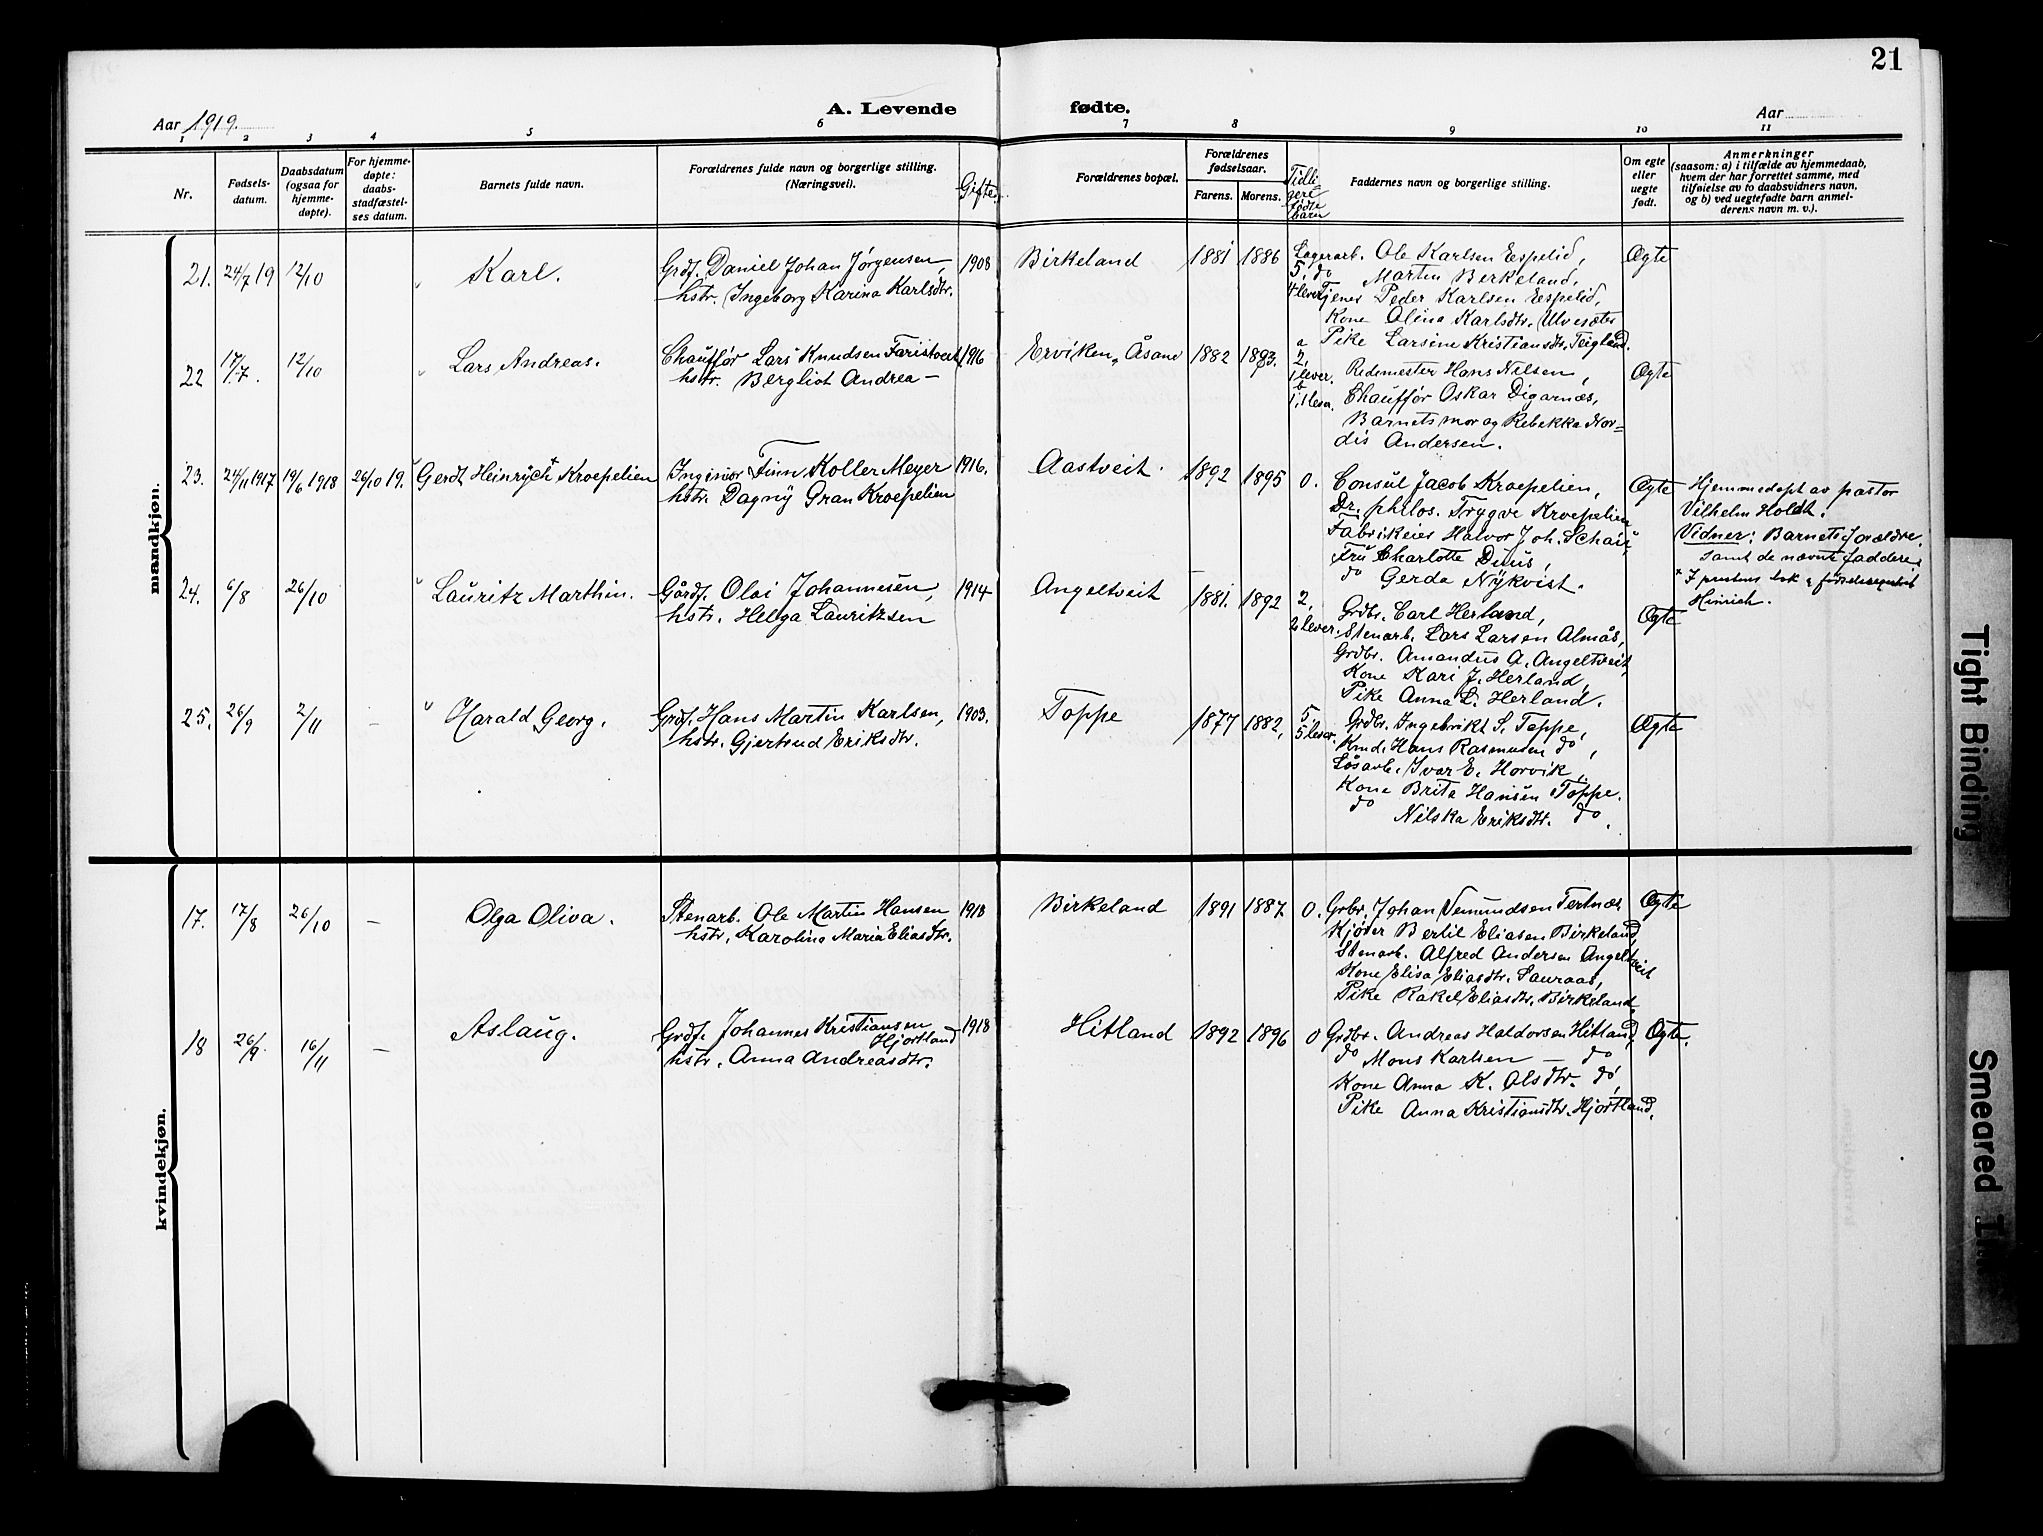 21
A. Levende fødte.
Aar 1919. Aar
1 2 3 4 5 6 7 8 9 10 11
Nr.
Fødsels-
datum.
Daabsdatum
(ogsaa for
hjemme-
døpte).
For hjemme-
døpte:
daabs-
stadfæstel-
ses datum.
Barnets fulde navn.
Forældrenes fulde navn og borgerlige stilling.
(Næringsvei).
Gifte.
Forældrenes bopæl.
Forældrenes
fødselsaar.
Farens. Morens.
Tidli-
gere
fødte
barn
Faddernes navn og borgerlige stilling.
Om egte
eller
uegte
født.
Anmerkninger
(saasom: a) i tilfælde av hjemmedaab,
hvem der har forrettet samme, med
tilføielse av to daabsvidners navn,
og b) ved uegtefødte barn anmel-
derens navn m. v.).
mandkjøn.
21. 24/7 19 12/10 " Karl.
Grdf. Daniel Johan Jørgensen,
hstr. Ingeborg Karina Karlsdtr.
1908 Birkeland 1881 1886
5.
4 lever
Lagerarb. Ole Karlsen Espelid,
do Martin Birkeland,
Tjener Peder Karlsen Espelid,
Kone Olina Karlsdtr. Ulvesæter
Pike Larsine Kristiansdtr. Teigland.
Ægte
22 17/7. 12/10 " Lars Andreas.
Chauffør Lars Knudsen Faristveit,
hstr. Bergliot Andrea —
1916 Erviken, Åsane 1882 1893.
a
2,
1 lever.
b
1, 1 lever.
Redemester Hans Nilsen,
Chauffør Oskar Digarnæs,
Barnets mor og Rebekka Nor=
dis Andersen.
Ægte
23. 24/11 1917 19/6 1918 26/10 19. " Gerdt Heinrych* Kroepelien
Ingeniør Finn Koller Meyer
hstr. Dagny Gran Kroepelien
1916. Aastveit. 1892 1895 0.
Consul Jacob Kroepelien,
Dr. philos. Trygve Kroepelien
Fabrikeier Halvor Joh. Schau,
Fru Charlotte Duus,
do Gerda Nykvist.
Ægte
Hjemmedøpt av pastor
Vilhelm Holdt.
Vidner: Barnets forældre.
samt de nævnte faddere
* I prestens bok &
Hinrich.
24. 6/8 26/10 " Lauritz Marthin.
Gårdf. Olai Johannesen,
hstr. Helga Lauritzsen
1914 Angeltveit 1881. 1892
2,
2 lever.
Grdbr. Carl Herland,
Stenarb. Lars Larsen Almås,
Grdbr. Amandus A. Angeltveit,
Kone Kari J. Herland,
Pike Anna L. Herland.
Ægte
25. 26/9 2/11 — " Harald Georg.
Grdf. Hans Martin Karlsen,
hstr. Gjertrud Eriksdtr.
1903. Toppe 1877 1882,
5.
5 lever.
Grdbr. Ingebrikt S. Toppe,
Kmd. Hans Rasmusen do,
Løsarb. Ivar E. Horvik,
Kone Brita Hansen Toppe.
do Nilska Eriksdtr. do.
Ægte
kvindekjøn.
17. 17/8 26/10 — Olga Oliva.
Stenarb. Ole Martin Hansen
hstr. Karoline Maria Eliasdtr.
1918 Birkeland 1891 1887 0.
Grbr. Johan Vemundsen Tertnæs.
Kjører Bertil Eliasen Birkeland,
Stenarb. Alfred Andersen Angeltveit
Kone Elisa Eliasdtr. Sauraas,
Pike Rakel Eliasdtr. Birkeland.
Ægte
18 26/9. 16/11 — Aslaug.
Grdf. Johannes Kristiansen
Hjortland
hstr. Anna Andreasdtr.
1918 Hitland 1892 1896 0
Grdbr. Andreas Haldorsen Hitland,
do Mons Karlsen — do
Kone Anna K. Olsdtr. do,
Pike Anna Kristiansdtr. Hjortland.
Ægte.
Tight Binding
Smeared